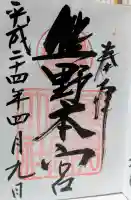 奉拝
熊野本宮
平成二十四年四月九日